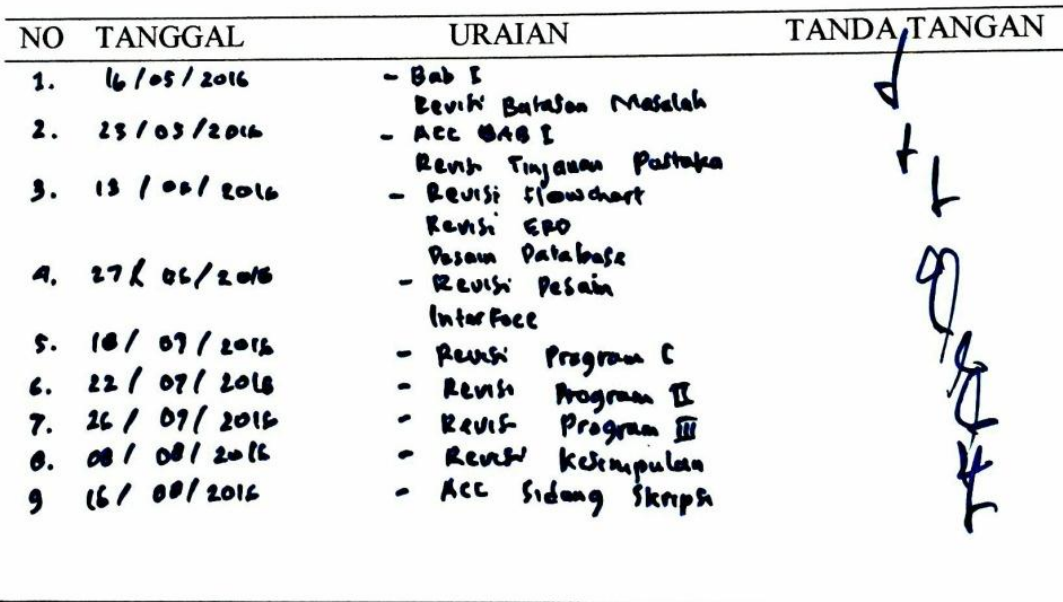 NO TANGGAL URAIAN TANDA TANGAN
1. 16/05/2016 - Bab I
Revisi Batasan Masalah
2. 23/05/2016 - ACC BAB I
Revisi Tinjauan Pustaka
3. 13/06/2016 - Revisi Flowchart
Revisi ERD
Desain Database
4. 27/06/2016 - Revisi Desain
Interface
5. 18/07/2016 - Revisi Program I
6. 22/07/2016 - Revisi Program II
7. 26/07/2016 - Revisi Program III
8. 08/08/2016 - Revisi Kesimpulan
9 16/08/2016 - ACC Sidang Skripsi